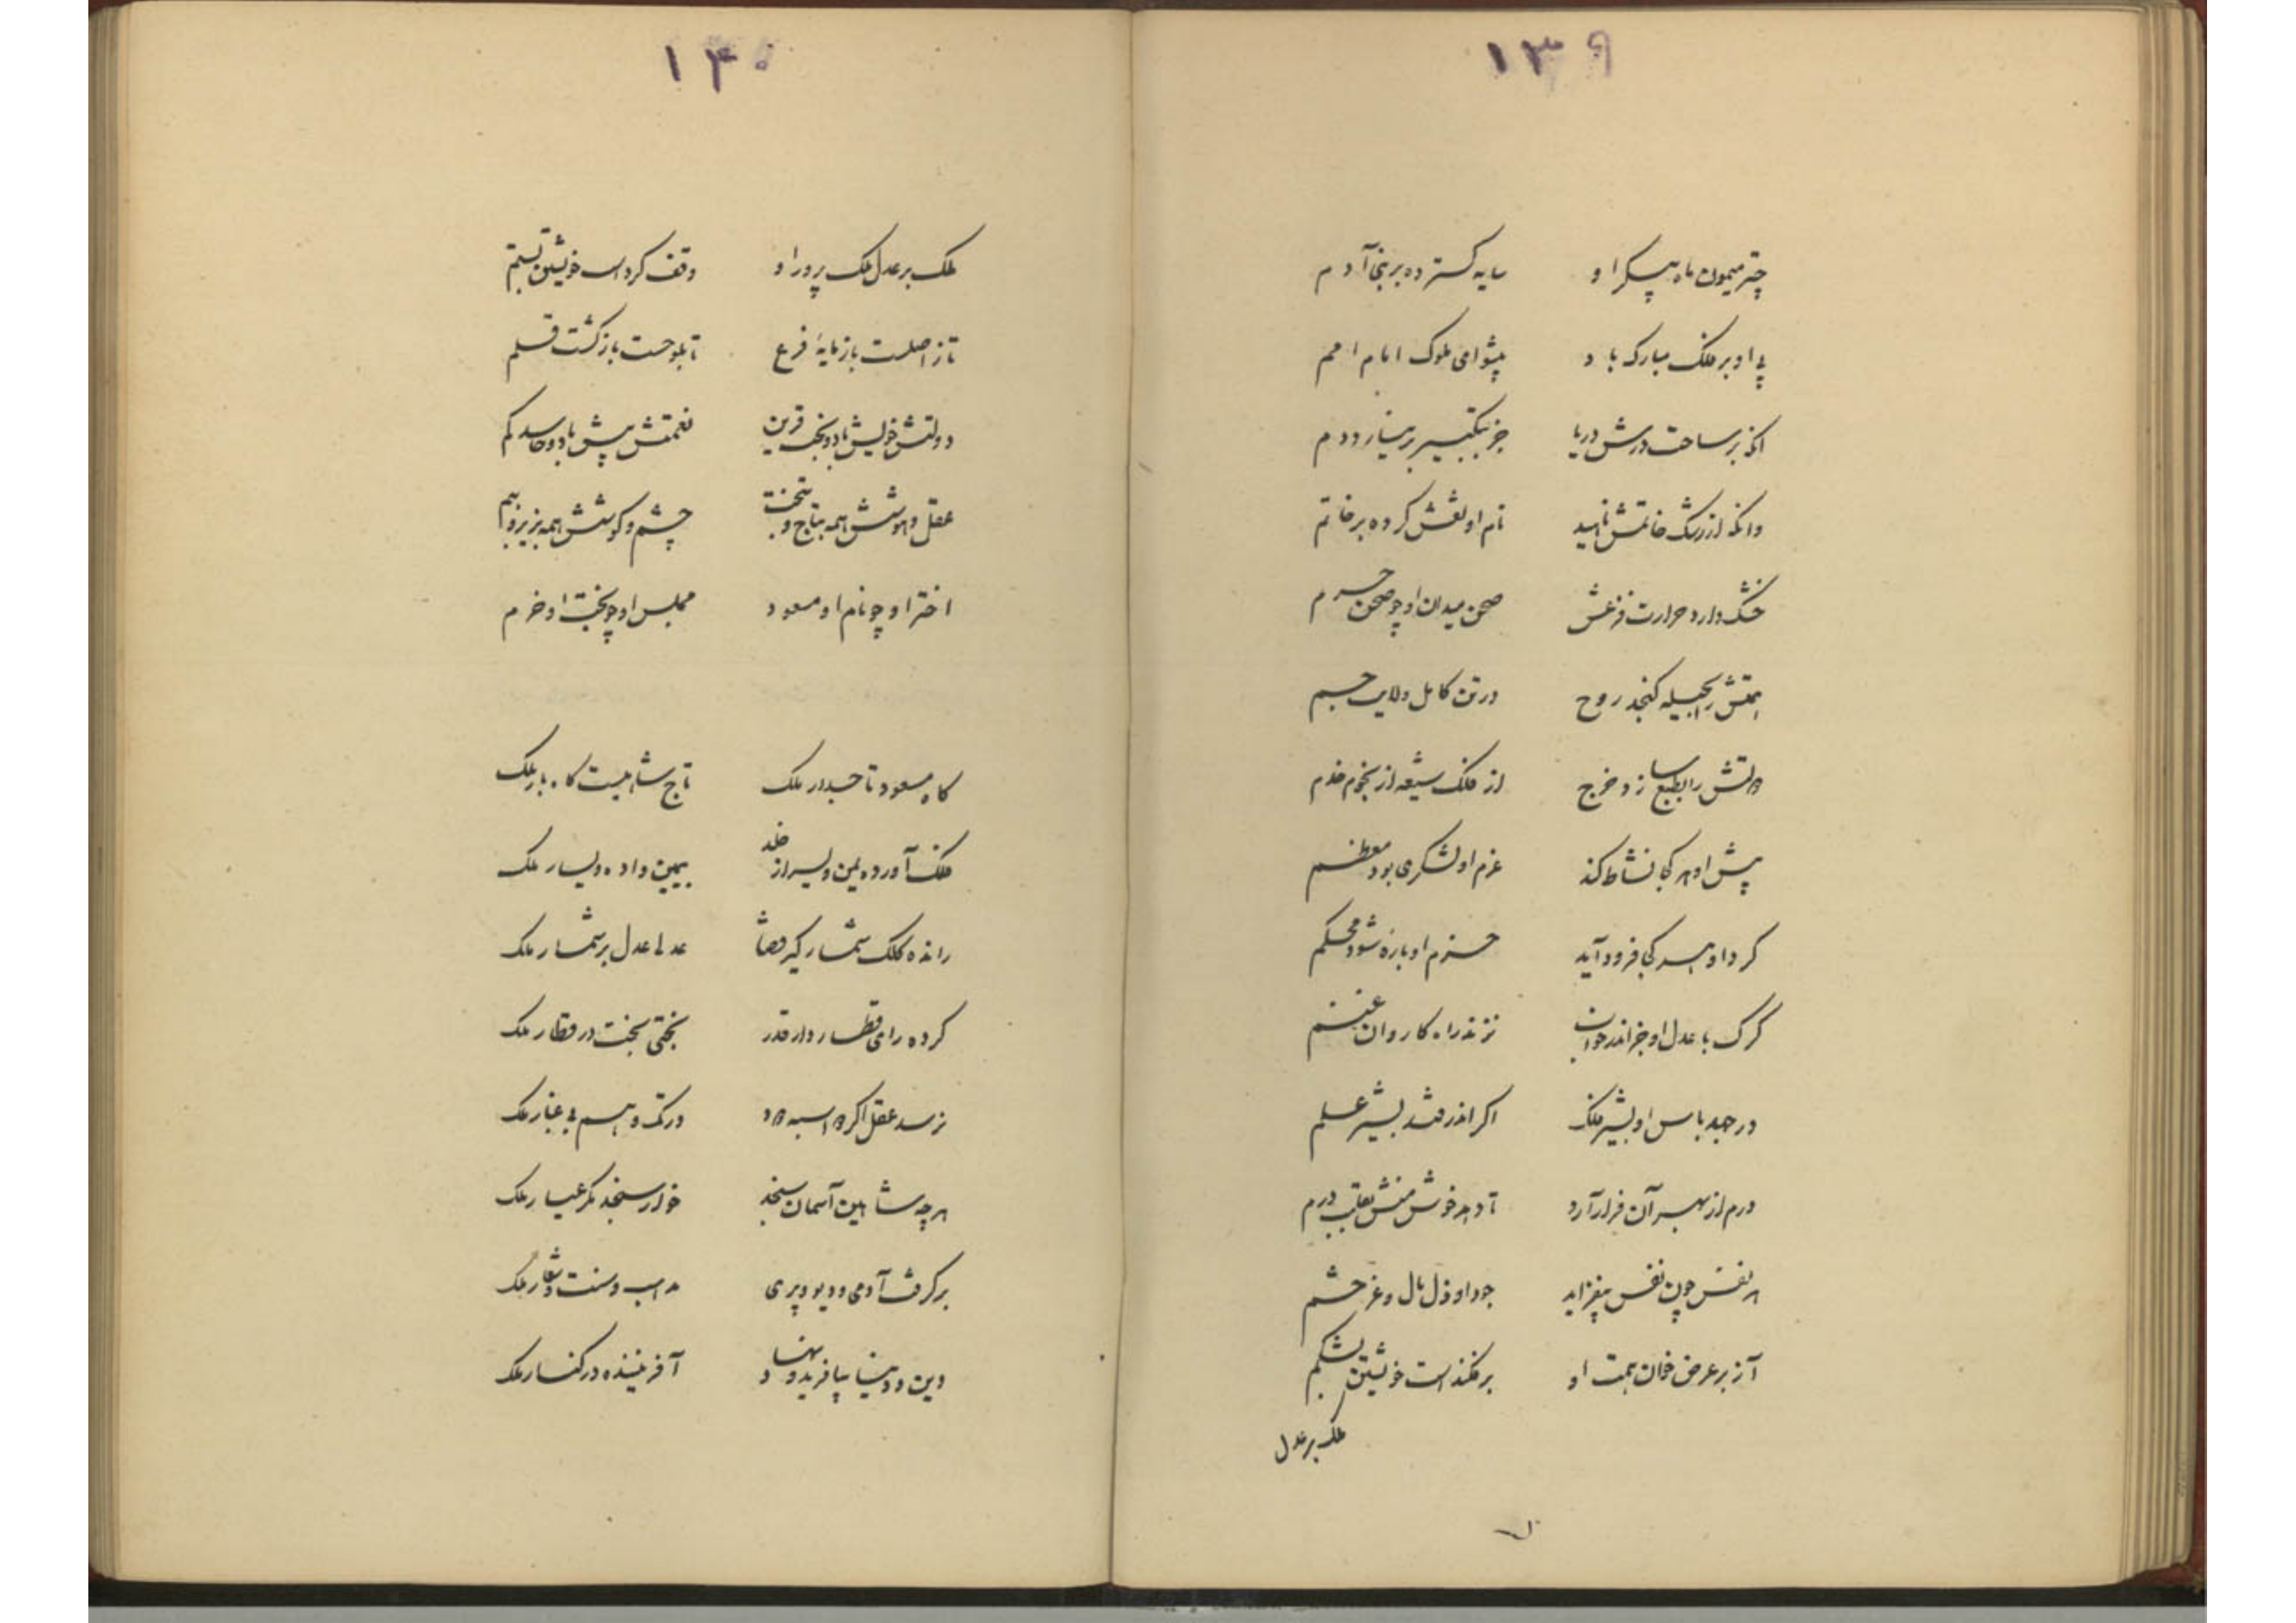 ۱۳۹
چتر میمون ماه پیکر او سایه گسترده بر بنی آدم
پی او بر ملک مبارک باد پیشوای ملوک امام امم
انکه بر ساحت درش دریا جز بتکبیر بر نیارد دم
وانکه از رشک خاتمش ناهید نام او نقش کرده بر خاتم
خشک دارد حرارت فزعش صحن میدان او چو صحن حرم
همتش را بحیله گنجد روح در تن کامل ولایت جسم
دولتش را بطبع سازد خرج از فلک شیعه از نجوم خدم
پیش او هر کجا نشاط کند عزم او لشکری بود معظم
گرد او هر کجا فرود آید حزم او باره شود محکم
گرگ با عدل او جز اندر خواب نزند راه کاروان غنم
در جهد باس او بشیر فلک اگر اندر فتد بشیر علم
درم از بهر آن فراز آرد تا دهد خوش منش بقلب درم
هر نفس چون نفس بیفزاید جود او ذل مال و عز حشم
آز بر عرض خوان همت او برفکنده است خویشتن بشکم
ملک بر عدل
۱۴۰
ملک بر عدل ملک پرور او وقف کرده است خویشتن بستم
تا ز اصلست بازمایهٔ فرع تا بلوحست بازگشت قلم
دولتش خویش باد و بخت قرین نعمتش بیش باد و حاسد کم
عقل و هوشش همه بتاج و بتخت چشم و گوشش همه بزیر و ببم
اختر او چو نام او مسعود مجلس او چو بخت او خرم
گاه مسعود تاجدار ملک تاج شاهیست گاه بار ملک
ملک آورده یمن و یسر از خلد بیمین داده و یسار ملک
رانده کلک شمار گیر قضا عدلها عدل بر شمار ملک
کرده رای قطار دار قدر بختی بخت در قطار ملک
نرسد عقل اگر دو اسبه دود در تک وهم بی غبار ملک
هرچه شاهین آسمان سنجد خوار سنجد مگر عیار ملک
برگرفت آدمی و دیو و پری مذهب و سنت و شعار ملک
دین و دنیا بیافرید و نهاد آفریننده در کنار ملک